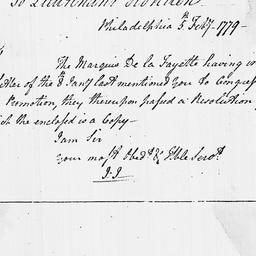 To Lieutenant
Philadelphia 5th Feby. 1779—
The Marquis De la Fayette having in
letter of the 8th Jany last mentioned you to Congress
Promotion, they thereupon passed a Resolution
the enclosed is a Copy—
I am Sir
your most Obedt. & Hble Servt.
J.J